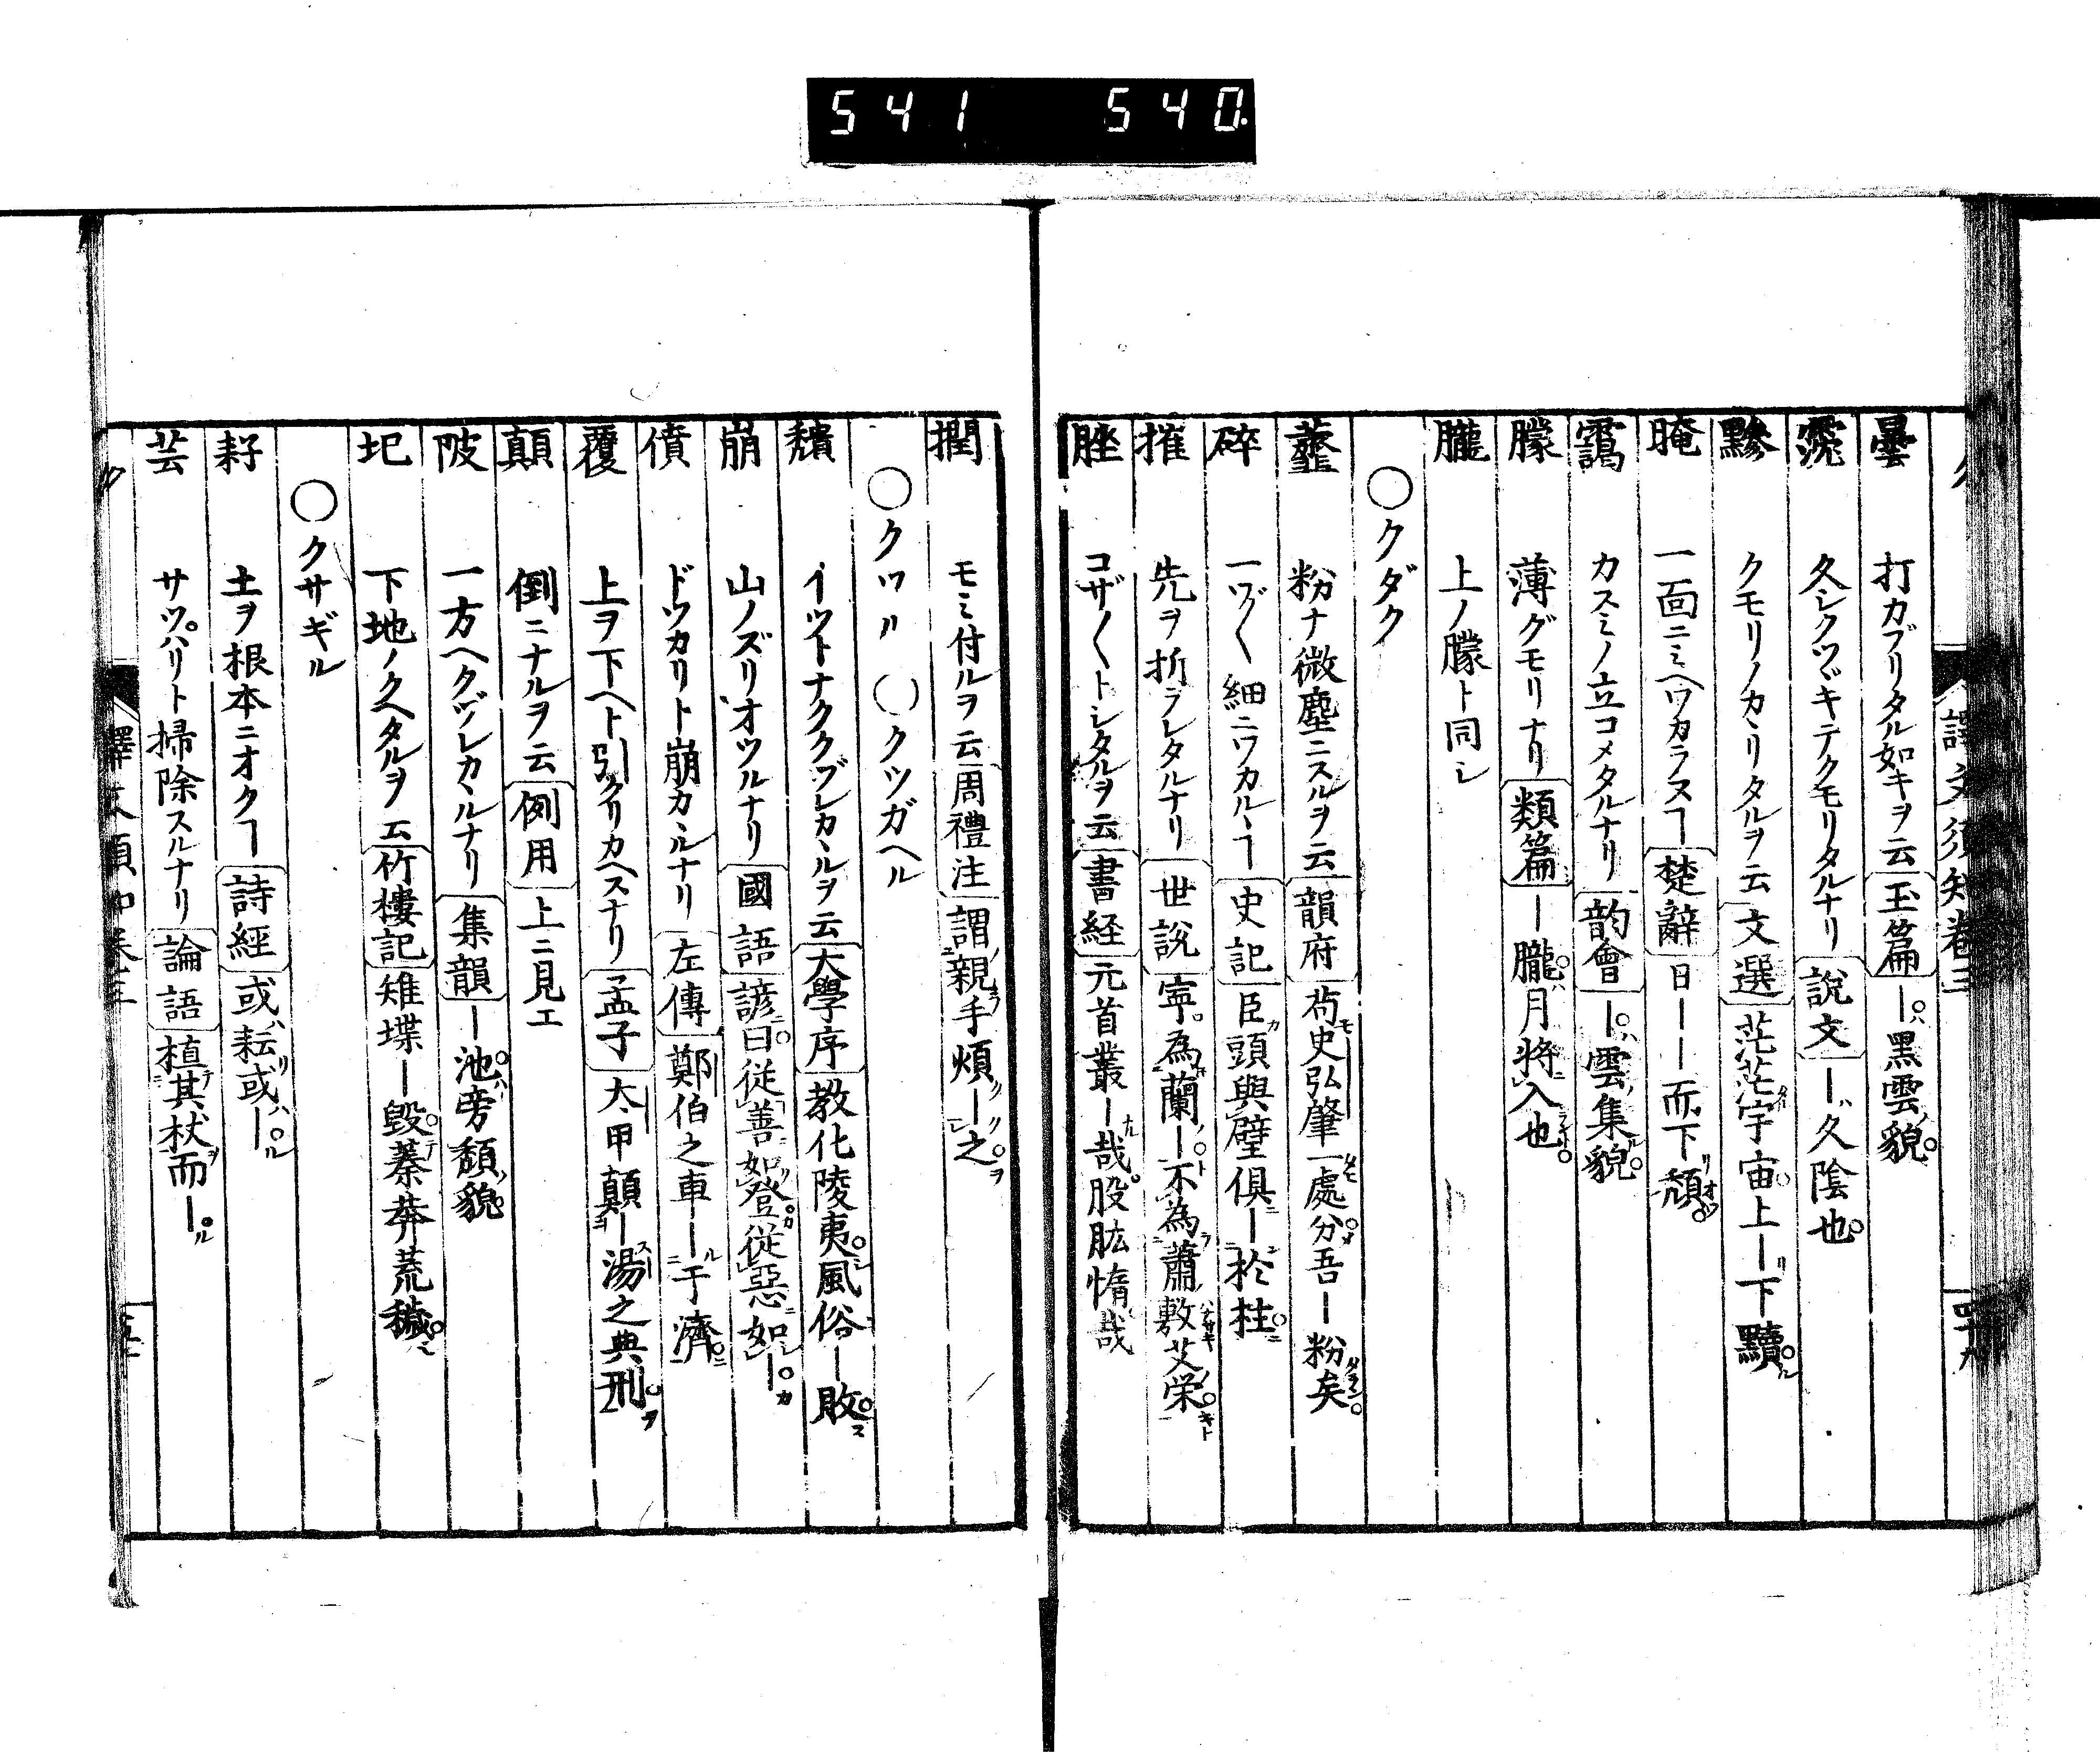 541 540
譯文須知巻三
曇 打カブリタル如キヲ云 玉篇 ーハ黒雲ノ貌
霃 久シクツヾキテクモリタルナリ 說文 ーハ久陰也
黲 クモリノカヽリタルヲ云 文選 茫茫宇宙上ー下黷
晻 一面ニミヘワカラヌヿ 楚辭 日ーー而下頽
靄 カスミノ立コメタルナリ 韵會 ーハ雲集貌
朦 薄グモリナリ 類篇 ー朧ハ月將入也
朧 上ノ朦ト同シ
○クダク
虀 粉ナ微塵ニスルヲ云 韻府 苟史弘肇一處分吾ー粉矣
碎 一ツヾヽ細ニワカルヽヿ 史記 臣頭與璧俱ー於柱
摧 先ヲ折ラレタルナリ 世說 寧為蘭ー不為蕭敷艾栄
脞 コザ〱トシタルヲ云 書経 元首叢ー哉股肱惰哉
撋 モミ付ルヲ云 周禮注 謂親手煩ー之
○クワル ○クツガヘル
頽 イツトナククヅレカヽルヲ云 大學序 教化陵夷風俗ー敗
崩 山ノズリオツルナリ 國語 諺曰從善如登從惡如ー
僨 ドツカリト崩カヽルナリ 左傳 鄭伯之車ー于濟
覆 上ヲ下ヘト引クリカヘスナリ 孟子 太甲顛ー湯之典刑
顛 倒ニナルヲ云 例用 上ニ見エ
陂 一方ヘクヅレカヽルナリ 集韻 ー池ハ旁頽貌
圮 下地ノクヘタルヲ云 竹樓記 雉堞ー毀蓁莽荒穢
○クサギル
耔 土ヲ根本ニオクヿ 詩經 或ハ耘或ハー
芸 サツパリト掃除スルナリ 論語 植其杖而ー